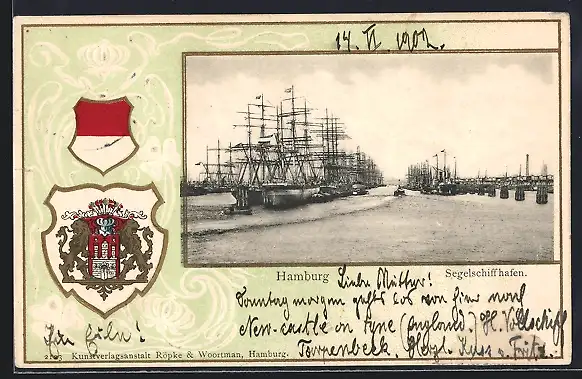 14. VI 1902.
Hamburg
Segelschiffhafen.
Liebe Mutter!
Sonntag morgen geht's los von hier nach
New-castle on Tyne (England). H. Vollschiff
In Eile!
Torrenbeck. Herzl. Kuss v. Fritz.
2103 Kunstverlagsanstalt Röpke & Woortman, Hamburg.